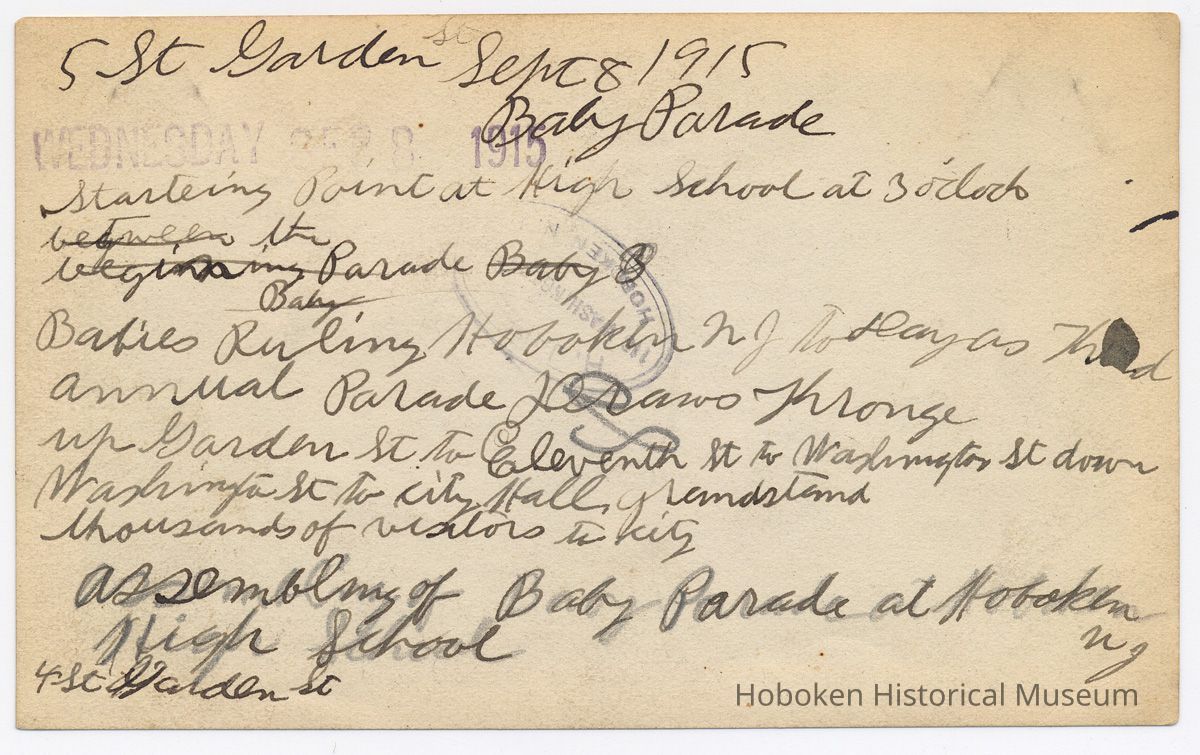 5 St Garden St Sept 8 1915
Baby Parade
WEDNESDAY SEP 8 1915
Starteing Point at High School at 3 o'clock
between the
beginning Parade Baby B
Baby
HOBOKEN, N
WASH
Babies Ruling Hoboken N J to day as Third
annual Parade Draws Thronge
up Garden St to Eleventh St to Washington St down
Washington St to city Hall, grandstand
thousands of visitors to city
assembling of Baby Parade at Hoboken
N J
High School
4 St Garden st
Hoboken Historical Museum